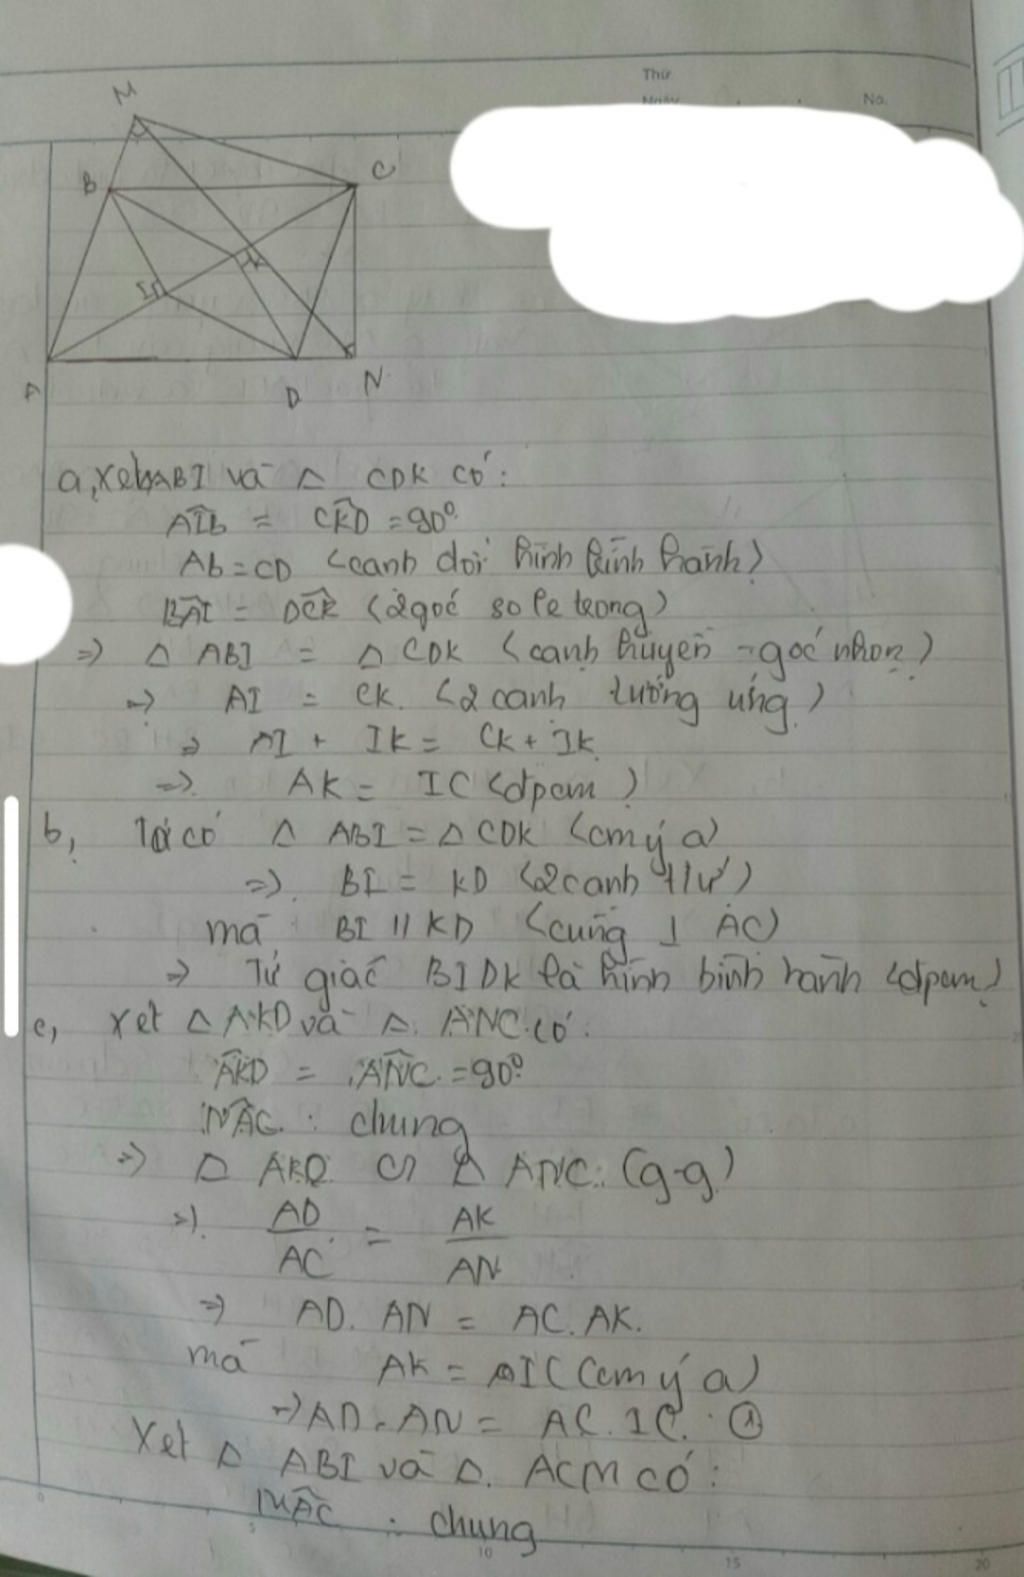 Thứ
Ngày
No.
M
B
C
I
K
A
D
N
a, Xét △ABI và △ CDK có:
AIb = CKD = 90°
Ab = CD (canh dối hình bình hành)
BAI = DCK (2 goć so le trong)
=> △ ABI = △ CDK (canh huyền - goć nhọn)
=> AI = CK (2 canh tương ứng)
=> AI + IK = CK + IK
=> AK = IC (đpcm)
b, Ta có △ ABI = △ CDK (cm ý a)
=> BI = KD (2 canh t/ứ)
mà BI // KD (cùng ⊥ AC)
=> Tứ giác BIDK là hình bình hành (đpcm)
c, xét △ AKD và △ ANC có:
AKD = ANC = 90°
NAC : chung
=> △ AKD ∽ △ ANC (g-g)
=> AD/AC = AK/AN
=> AD. AN = AC. AK.
mà AK = IC (cm ý a)
=> AD. AN = AC. IC. ①
Xét △ ABI và △ ACM có:
MAC : chung
5
10
15
20